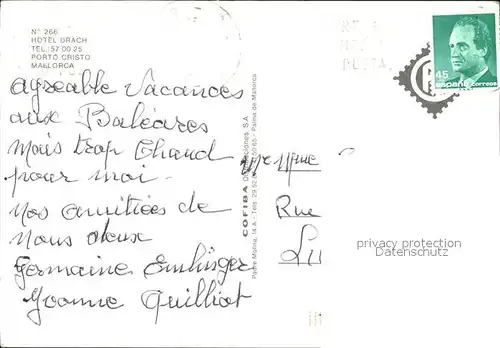 Nº 266
HOTEL DRACH
TEL. 57 00 25
PORTO CRISTO
MALLORCA
agréable Vacances
aux Baléares
Mais trop Chaud
pour moi.
Nos amitiées de
Nous deux
Germaine
Yvonne
COFIBA
S.A.
Palma de Mallorca
45
ESPAÑA correos
Mme
Rue
privacy protection
Datenschutz